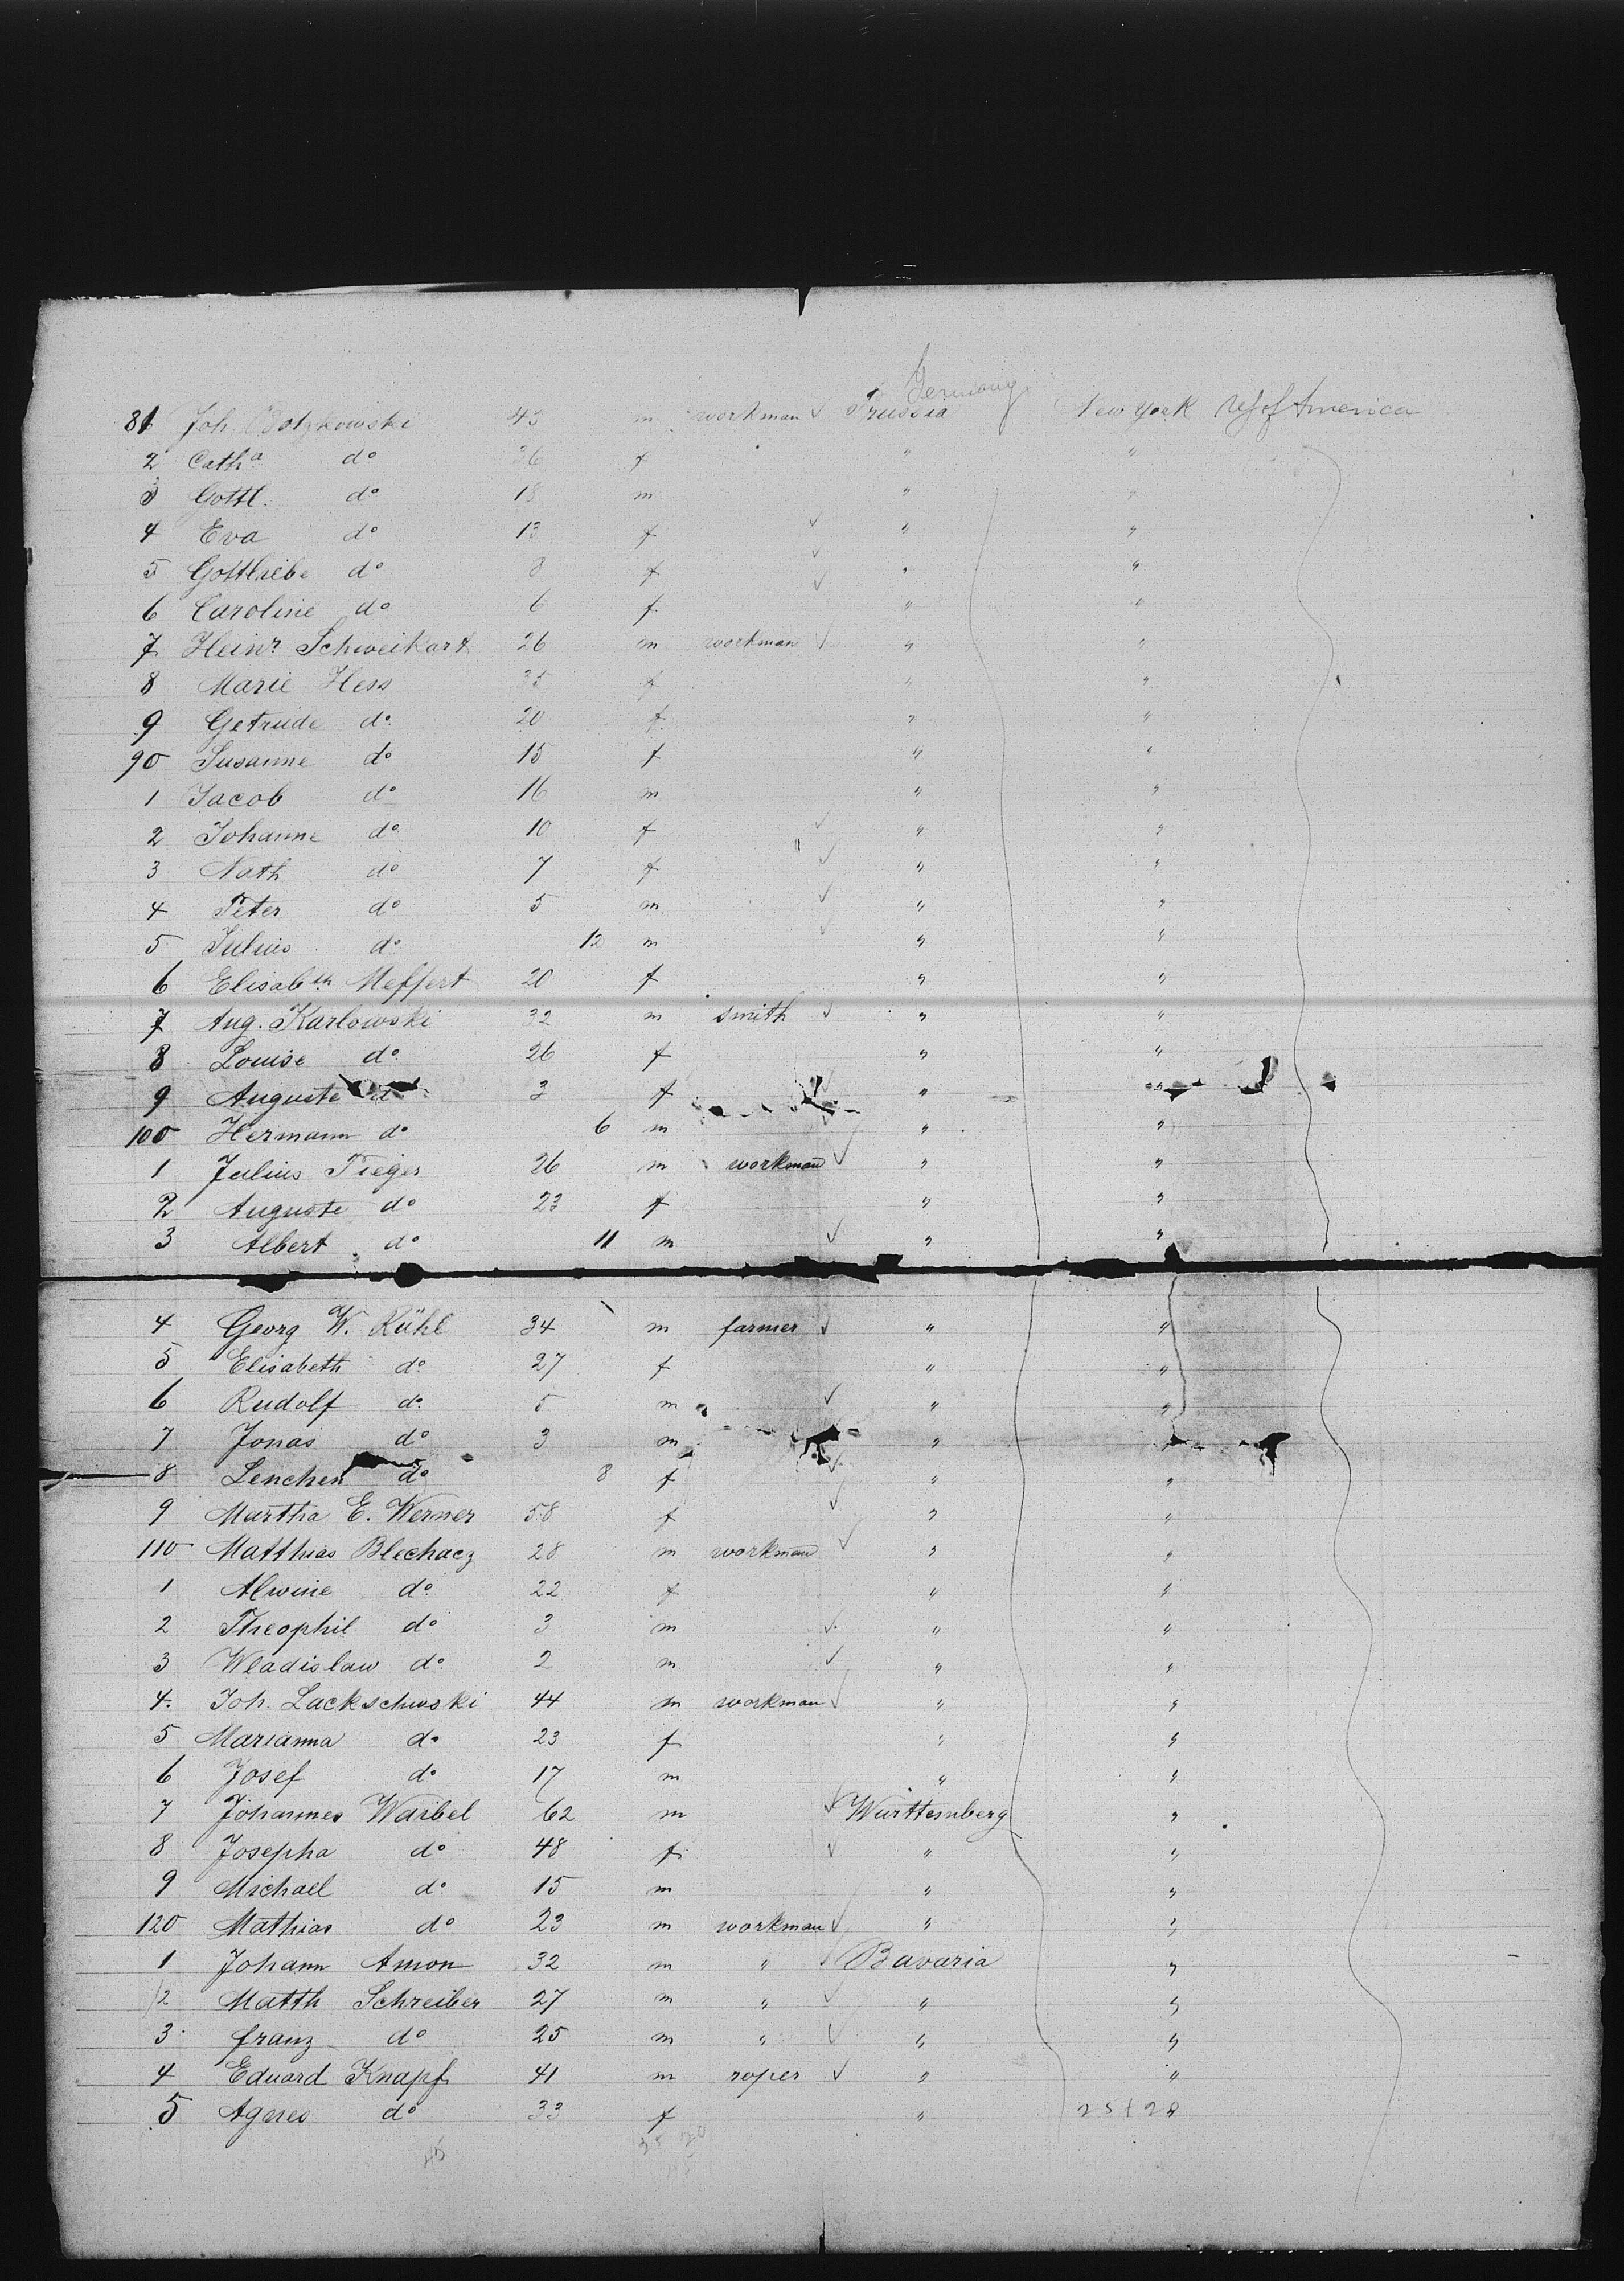 Germany
81 Joh. Botzkowski 43 m workman ✓ Prussia New York US of America
2 Cath.a do 36 f " "
3 Gottl. do 18 m " "
4 Eva do 13 f ✓ " "
5 Gottliebe do 8 f ✓ " "
6 Caroline do 6 f ✓ " "
7 Heinr. Schweikart 26 m workman ✓ " "
8 Marie Hess 35 f " "
9 Getrude do 20 f " "
90 Susanne do 15 f " "
1 Jacob do 16 m " "
2 Johanne do 10 f ✓ " "
3 Nath do 7 f ✓ " "
4 Peter do 5 m ✓ " "
5 Julius do 12 m ✓ " "
6 Elisabth Meffert 20 f " "
7 Aug. Karlowski 32 m smith ✓ " "
8 Louise do 26 f " "
9 Auguste do 3 f ✓ " "
100 Hermann do 6 m " "
1 Julius Tieger 26 m workman ✓ " "
2 Auguste do 23 f " "
3 Albert do 11 m ✓ " "
4 Georg W. Rühl 34 m farmer ✓ " "
5 Elisabeth do 27 f " "
6 Rudolf do 5 m ✓ " "
7 Jonas do 3 m ✓ "
8 Lenchen do 8 f ✓ " "
9 Martha E. Werner 58 f ✓ " "
110 Matthias Blechacz 28 m workman ✓ " "
1 Alwine do 22 f " "
2 Theophil do 3 m ✓ " "
3 Wladislaw do 2 m ✓ " "
4. Joh. Lackschewski 44 m workman ✓ " "
5 Marianna do 23 f " "
6 Josef do 17 m " "
7 Johannes Waibel 62 m ✓ Württemberg "
8 Josepha do 48 f ✓ " "
9 Michael do 15 m " "
120 Mathias do 23 m workman ✓ " "
1 Johann Amon 32 m " ✓ Bavaria "
2 Matth Schreiber 27 m " ✓ " "
3 franz do 25 m " ✓ " "
4 Eduard Knapf 41 m roper ✓ " "
5 Agnes do 33 f " 25+20
45 25 20